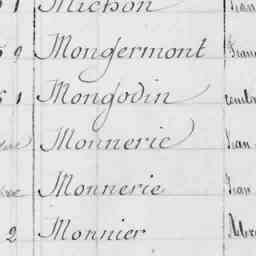 Michon
9 Mongermont
1 Mongodin
Monnerie Jean
Monnerie Jean
2 Monnier